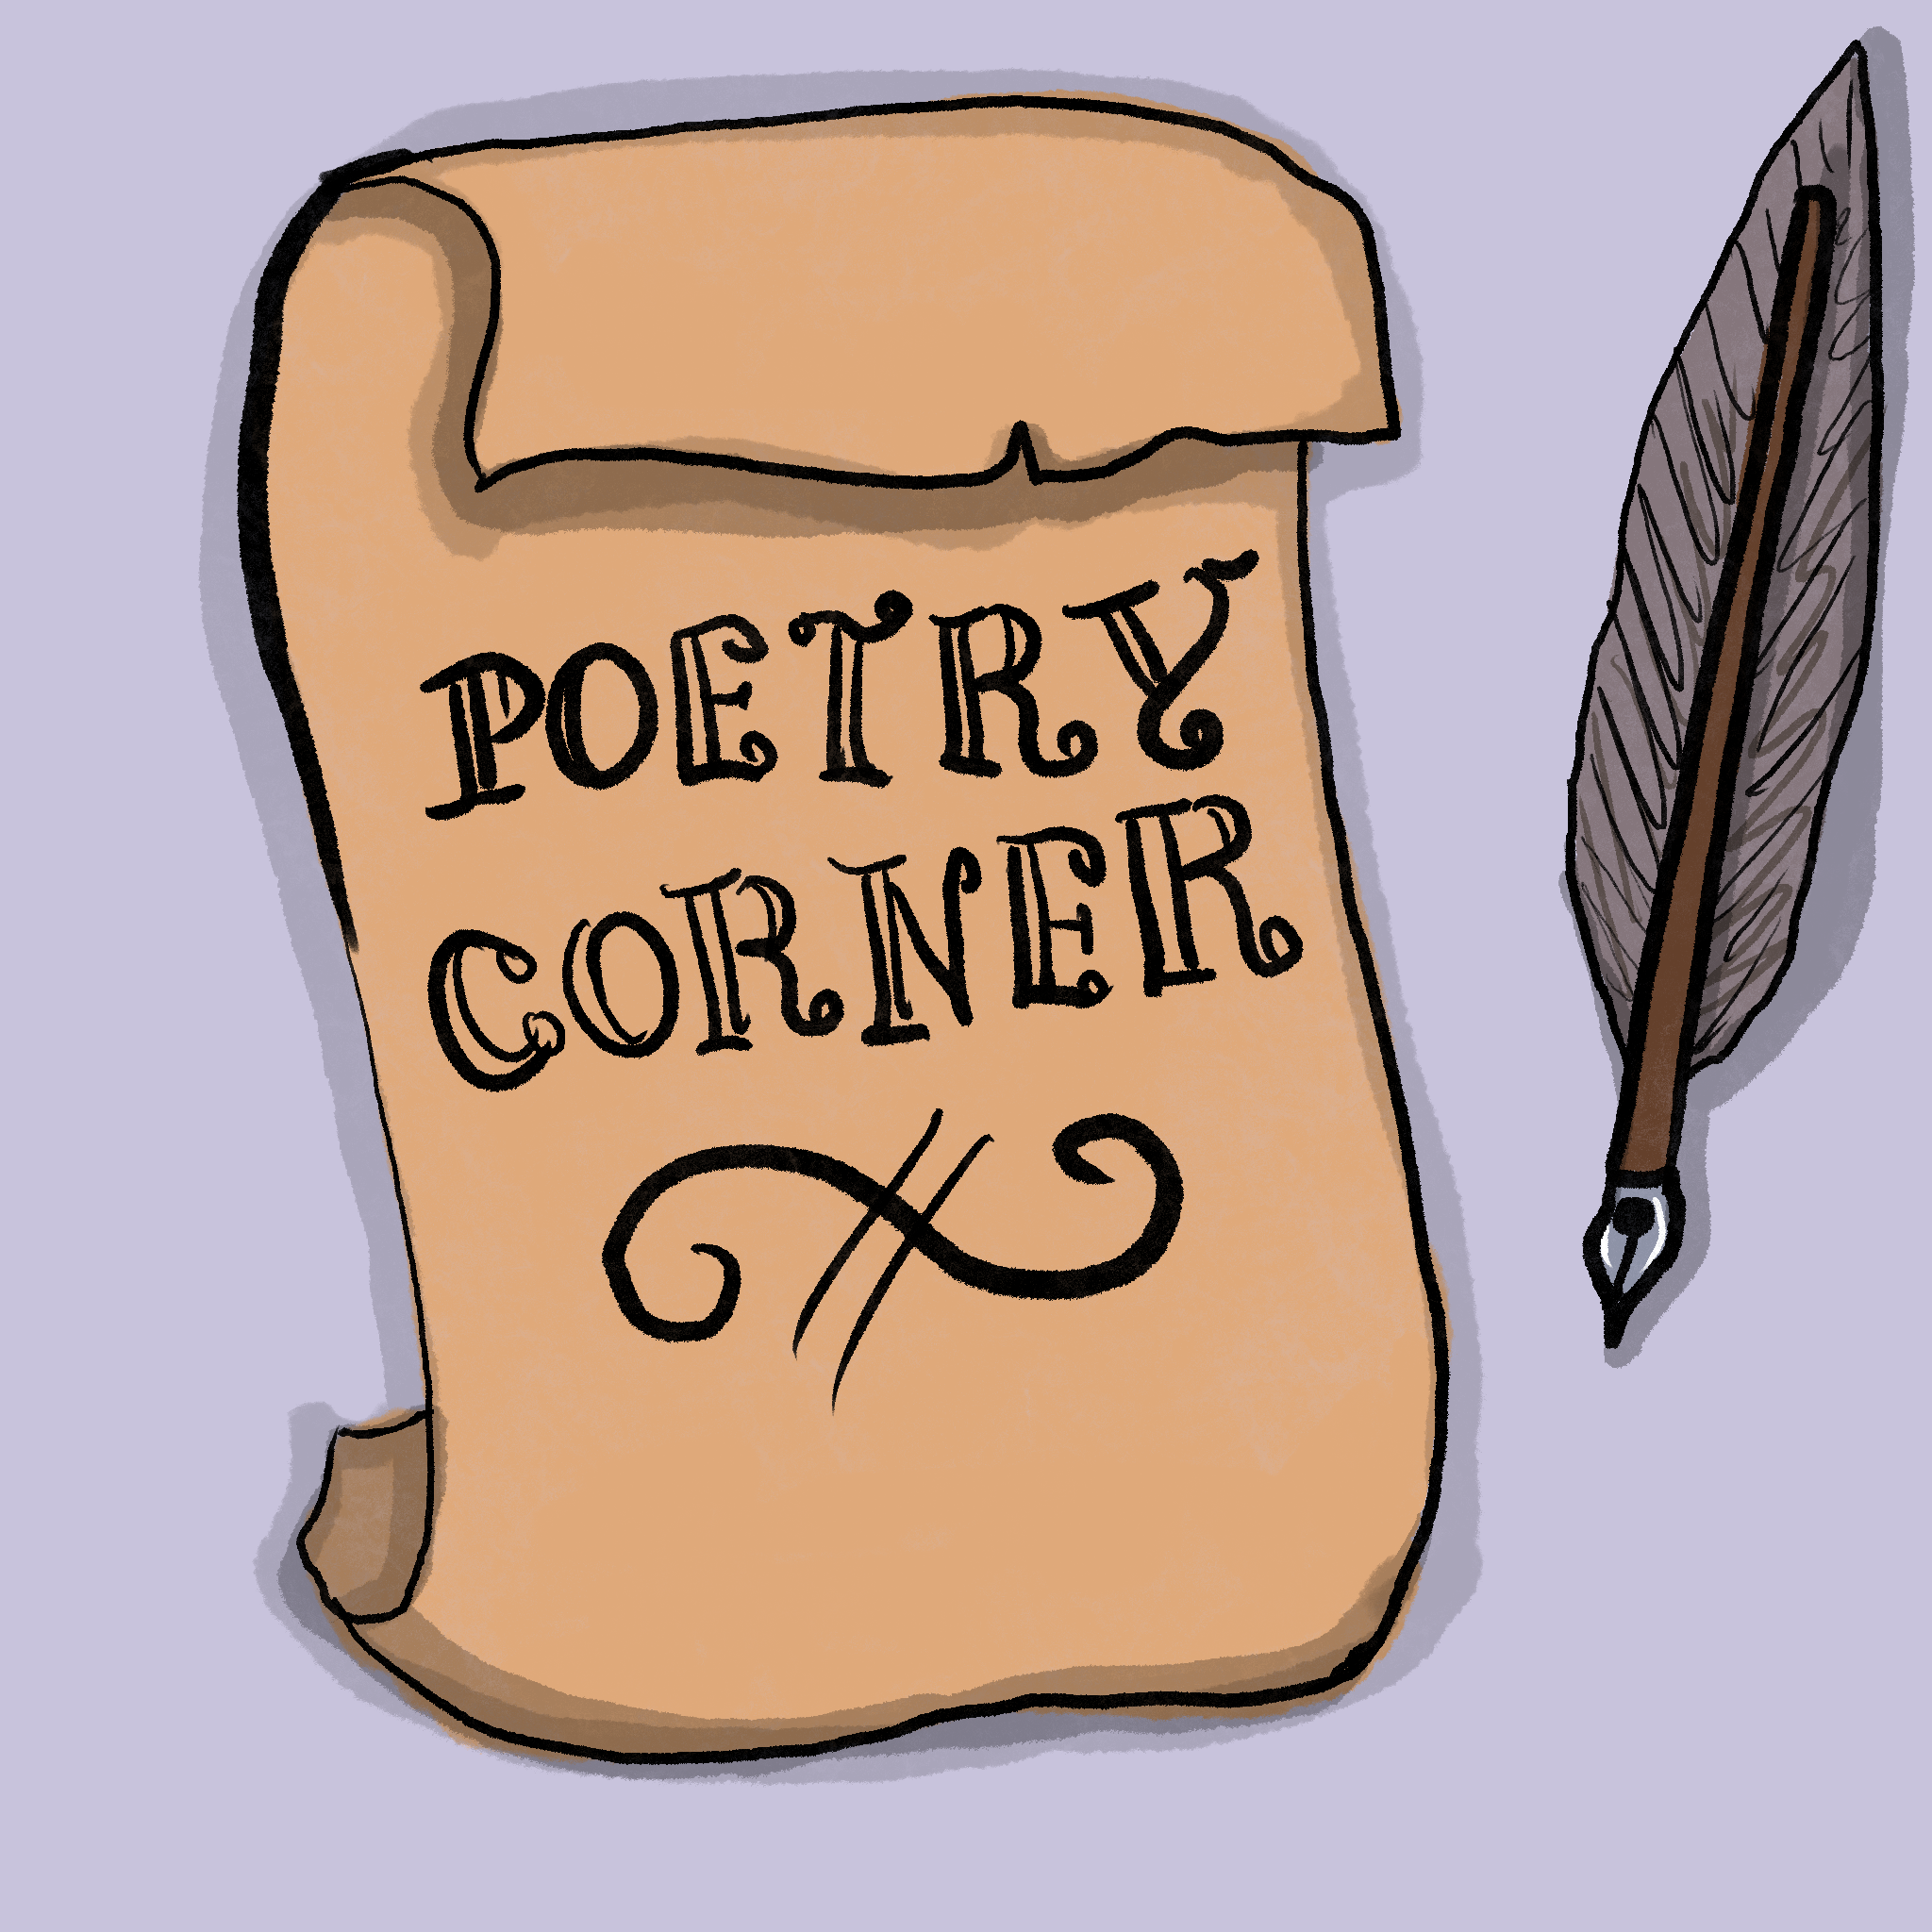 POETRY
CORNER